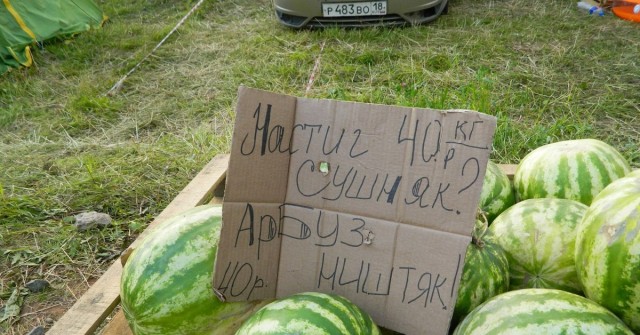 Р 483 ВО 18
Настиг 40р. кг
Сушняк?
Арбуз
40р. ништяк!